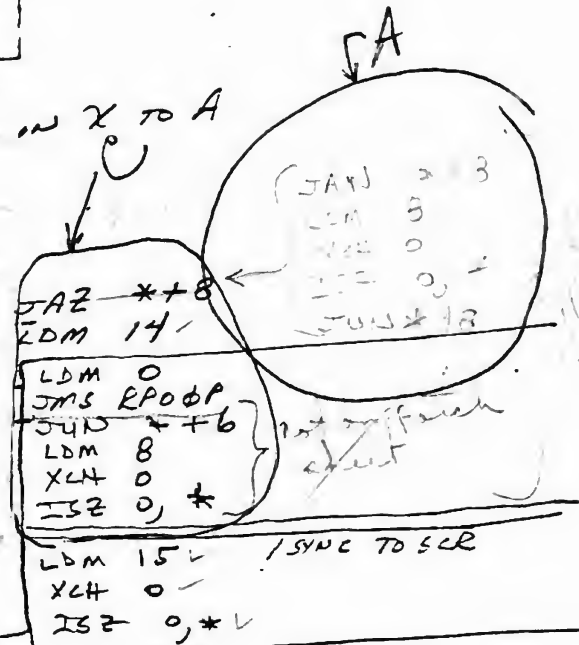 A
IN X TO A
JAN * + 3
LDM 8
XCH 0
ISZ 0, *
JUN * + 8
JAZ * + 8
LDM 14 ✓
LDM 0
JMS RPOΦP
JUN * + 6
LDM 8
XCH 0
ISZ 0, *
LDM 15 ✓ / SYNC TO SCR
XCH 0 ✓
ISZ 0, * ✓